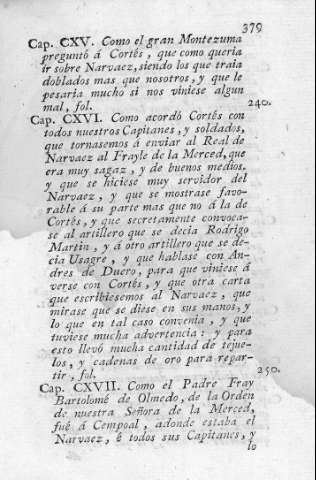 379
Cap. CXV. Como el gran Montezuma
preguntó á Cortés, que como queria
ir sobre Narvaez, siendo los que traia
doblados mas que nosotros, y que le
pesaria mucho si nos viniese algun
mal, fol. 240.
Cap. CXVI. Como acordó Cortés con
todos nuestros Capitanes, y soldados,
que tornasemos á enviar al Real de
Narvaez al Frayle de la Merced, que
era muy sagaz, y de buenos medios,
y que se hiciese muy servidor del
Narvaez, y que se mostrase favo-
rable á su parte mas que no á la de
Cortés, y que secretamente convoca-
se al artillero que se decia Rodrigo
Martin, y á otro artillero que se de-
cia Usagre, y que hablase con An-
dres de Duero, para que viniese á
verse con Cortés, y que otra carta
que escribiesemos al Narvaez, que
mirase que se diese en sus manos, y
lo que en tal caso convenia, y que
tuviese mucha advertencia: y para
esto llevó mucha cantidad de tejue-
los, y cadenas de oro para repar-
tir, fol. 250.
Cap. CXVII. Como el Padre Fray
Bartolomé de Olmedo, de la Orden
de nuestra Señora de la Merced,
fué á Cempoal, adonde estaba el
Narvaez, é todos sus Capitanes, y
lo